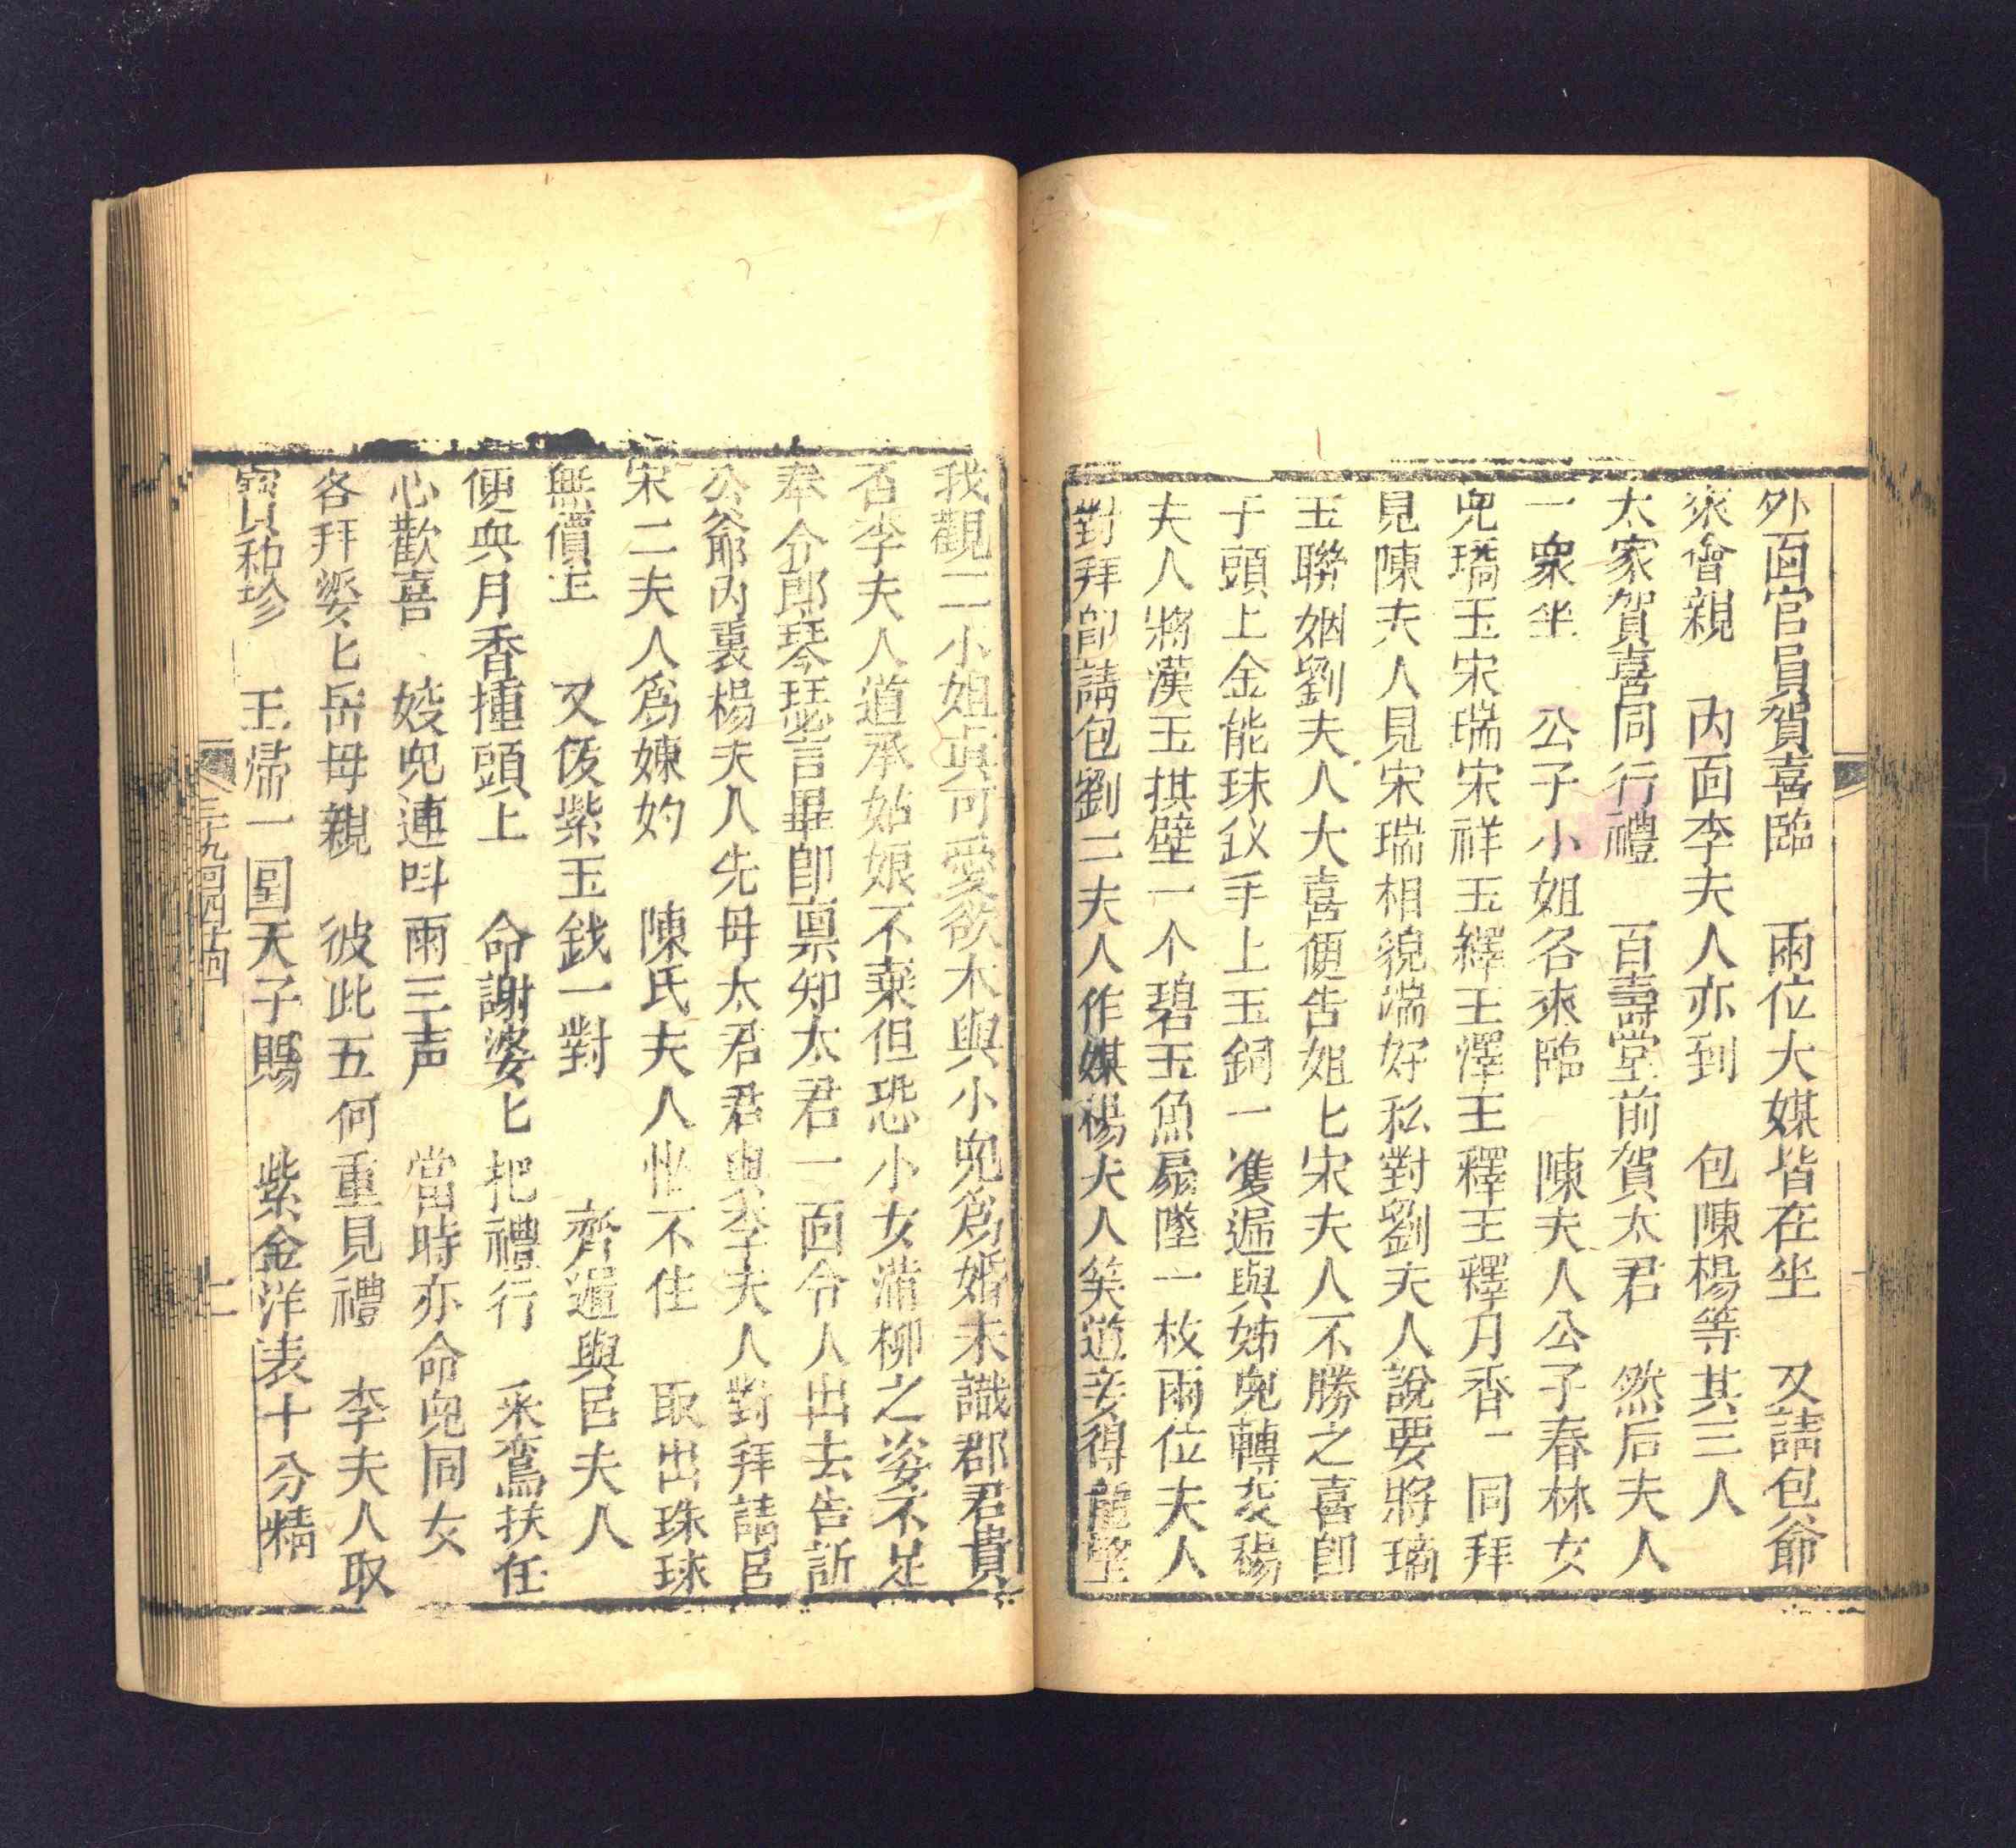 外面官員賀喜臨　兩位大媒皆在坐　又請包爺
來會親　內面李夫人亦到　包陳楊等其三人
太家賀喜同行禮　百壽堂前賀太君　然后夫人
一衆坐　公子小姐各來臨　陳夫人公子春林女
兒璚玉宋瑞宋祥玉繹王澤王釋王釋月香一同拜
見陳夫人見宋瑞相貌端好私對劉夫人說要將璚
玉聯姻劉夫人大喜便告姐匕宋夫人不勝之喜卽
于頭上金能珠釵手上玉鐲一雙遞與姊兒轉交楊
夫人將漢玉拱壁一个碧玉魚扇墜一枚兩位夫人
對拜卽請包劉二夫人作媒楊夫人笑道妾得龍壻
我觀二小姐真可愛欲木與小兒爲婚未識郡君貴
否李夫人道承姑娘不棄但恐小女蒲柳之姿不足
奉令郎琴瑟言畢卽禀知太君一面令人出去告訴
公爺內裏楊夫人先母太君君與李夫人對拜請呂
宋二夫人爲媒妁　陳氏夫人忙不住　取出珠球
無價玉　又伋紫玉釵一對　齊遞與呂夫人
便與月香揷頭上　命謝婆匕把禮行　采鸞扶在
心歡喜　姣兒連呌兩三声　當時亦命兒同女
各拜婆匕岳母親　彼此五何重見禮　李夫人取
寶貝秘珍　王帶一圍天子賜　紫金洋表十分精
三九回四字回